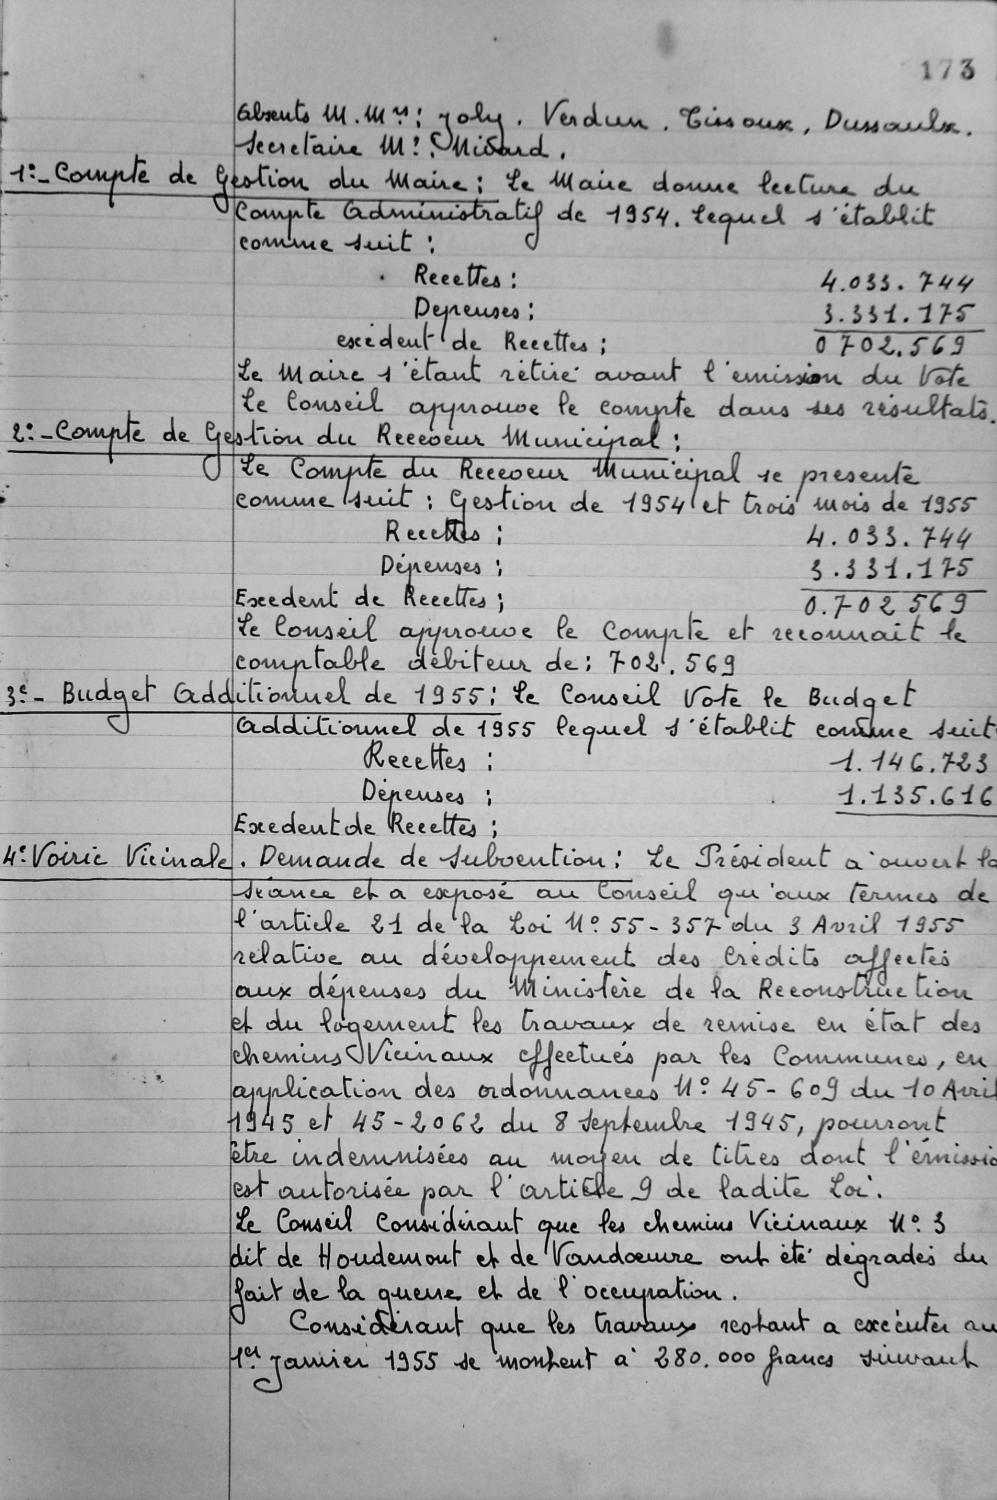 173
Absents M.Mrs: Joly. Verdun. Tissoux, Dussaulx.
Secretaire Mr: Midard.
1º-Compte de Gestion du Maire: Le Maire donne lecture du
Compte Administratif de 1954. lequel s'établit
comme suit:
Recettes: 4.033.744
Depenses: 3.331.175
excédent de Recettes: 0702.569
Le Maire s'étant rétiré avant l'émission du Vote
Le Conseil approuve le compte dans ses résultats.
2º-Compte de Gestion du Receveur Municipal:
Le Compte du Receveur Municipal se présente
comme suit: Gestion de 1954 et trois mois de 1955
Recettes: 4.033.744
Dépenses: 3.331.175
Excedent de Recettes; 0.702 569
Le Conseil approuve le Compte et reconnait le
comptable débiteur de: 702.569
3e- Budget Additionnel de 1955: Le Conseil Vote le Budget
Additionnel de 1955 lequel s'établit comme suit
Recettes: 1.146.723
Dépenses: 1.135.616
Excedent de Recettes;
4e Voirie Vicinale. Demande de Subvention: Le Président a ouvert la
séance et a exposé au Conseil qu'aux termes de
l'article 21 de la Loi Nº 55-357 du 3 Avril 1955
relative au développement des Crédits affectés
aux dépenses du Ministère de la Reconstruction
et du logement les travaux de remise en état des
chemins Vicinaux effectués par les Communes, en
application des ordonnances Nº 45-609 du 10 Avril
1945 et 45-2062 du 8 Septembre 1945, pourront
être indemnisées au moyen de titres dont l'émissio
est autorisée par l'article 9 de ladite Loi.
Le Conseil Considérant que les chemins Vicinaux Nº 3
dit de Houdemont et de Vandoeuvre ont été dégradés du
fait de la guerre et de l'occupation.
Considérant que les travaux restant a exécuter au
1er Janvier 1955 se montent à 280.000 francs suivant